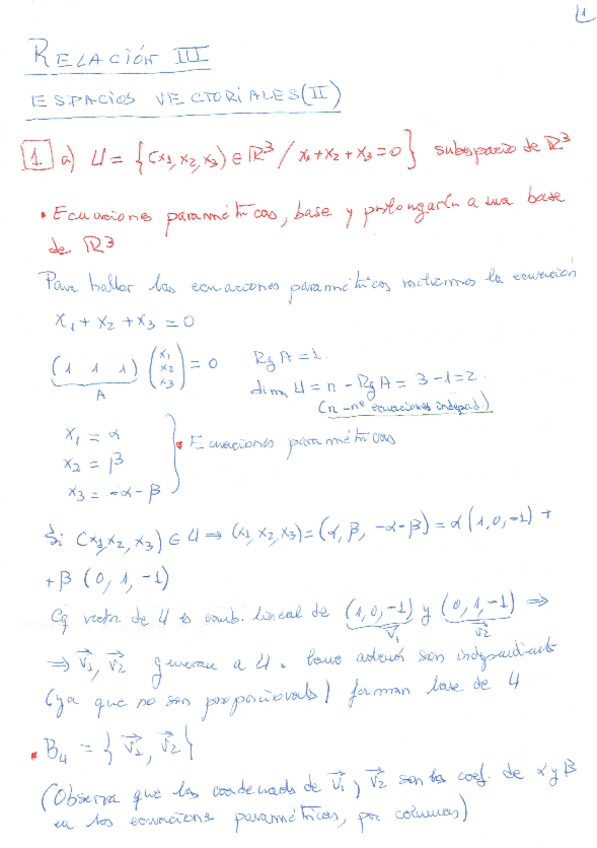 1
RELACIÓN III
ESPACIOS VECTORIALES (II)
1. a) U = {(x₁, x₂, x₃) ∈ ℝ³ / x₁ + x₂ + x₃ = 0} subespacio de ℝ³
• Ecuaciones paramétricas, base y prolongarla a una base
de ℝ³
Para hallar las ecuaciones paramétricas resolvemos la ecuación
x₁ + x₂ + x₃ = 0
(1 1 1) (x₁ x₂ x₃) = 0 Rg A = 1.
A dim U = n - Rg A = 3 - 1 = 2.
(n - nº ecuaciones independ.)
x₁ = α
x₂ = β • Ecuaciones paramétricas
x₃ = -α - β
Si (x₁, x₂, x₃) ∈ U ⇒ (x₁, x₂, x₃) = (α, β, -α-β) = α (1, 0, -1) +
+ β (0, 1, -1)
Cq vector de U es comb. lineal de (1, 0, -1) y (0, 1, -1) ⇒
v₁ v₂
⇒ v₁, v₂ generan a U. Como además son independientes
(ya que no son proporcionales) forman base de U
• B_U = {v₁, v₂}
(Observa que las coordenadas de v₁ y v₂ son los coef. de α y β
en las ecuaciones paramétricas, por columnas)